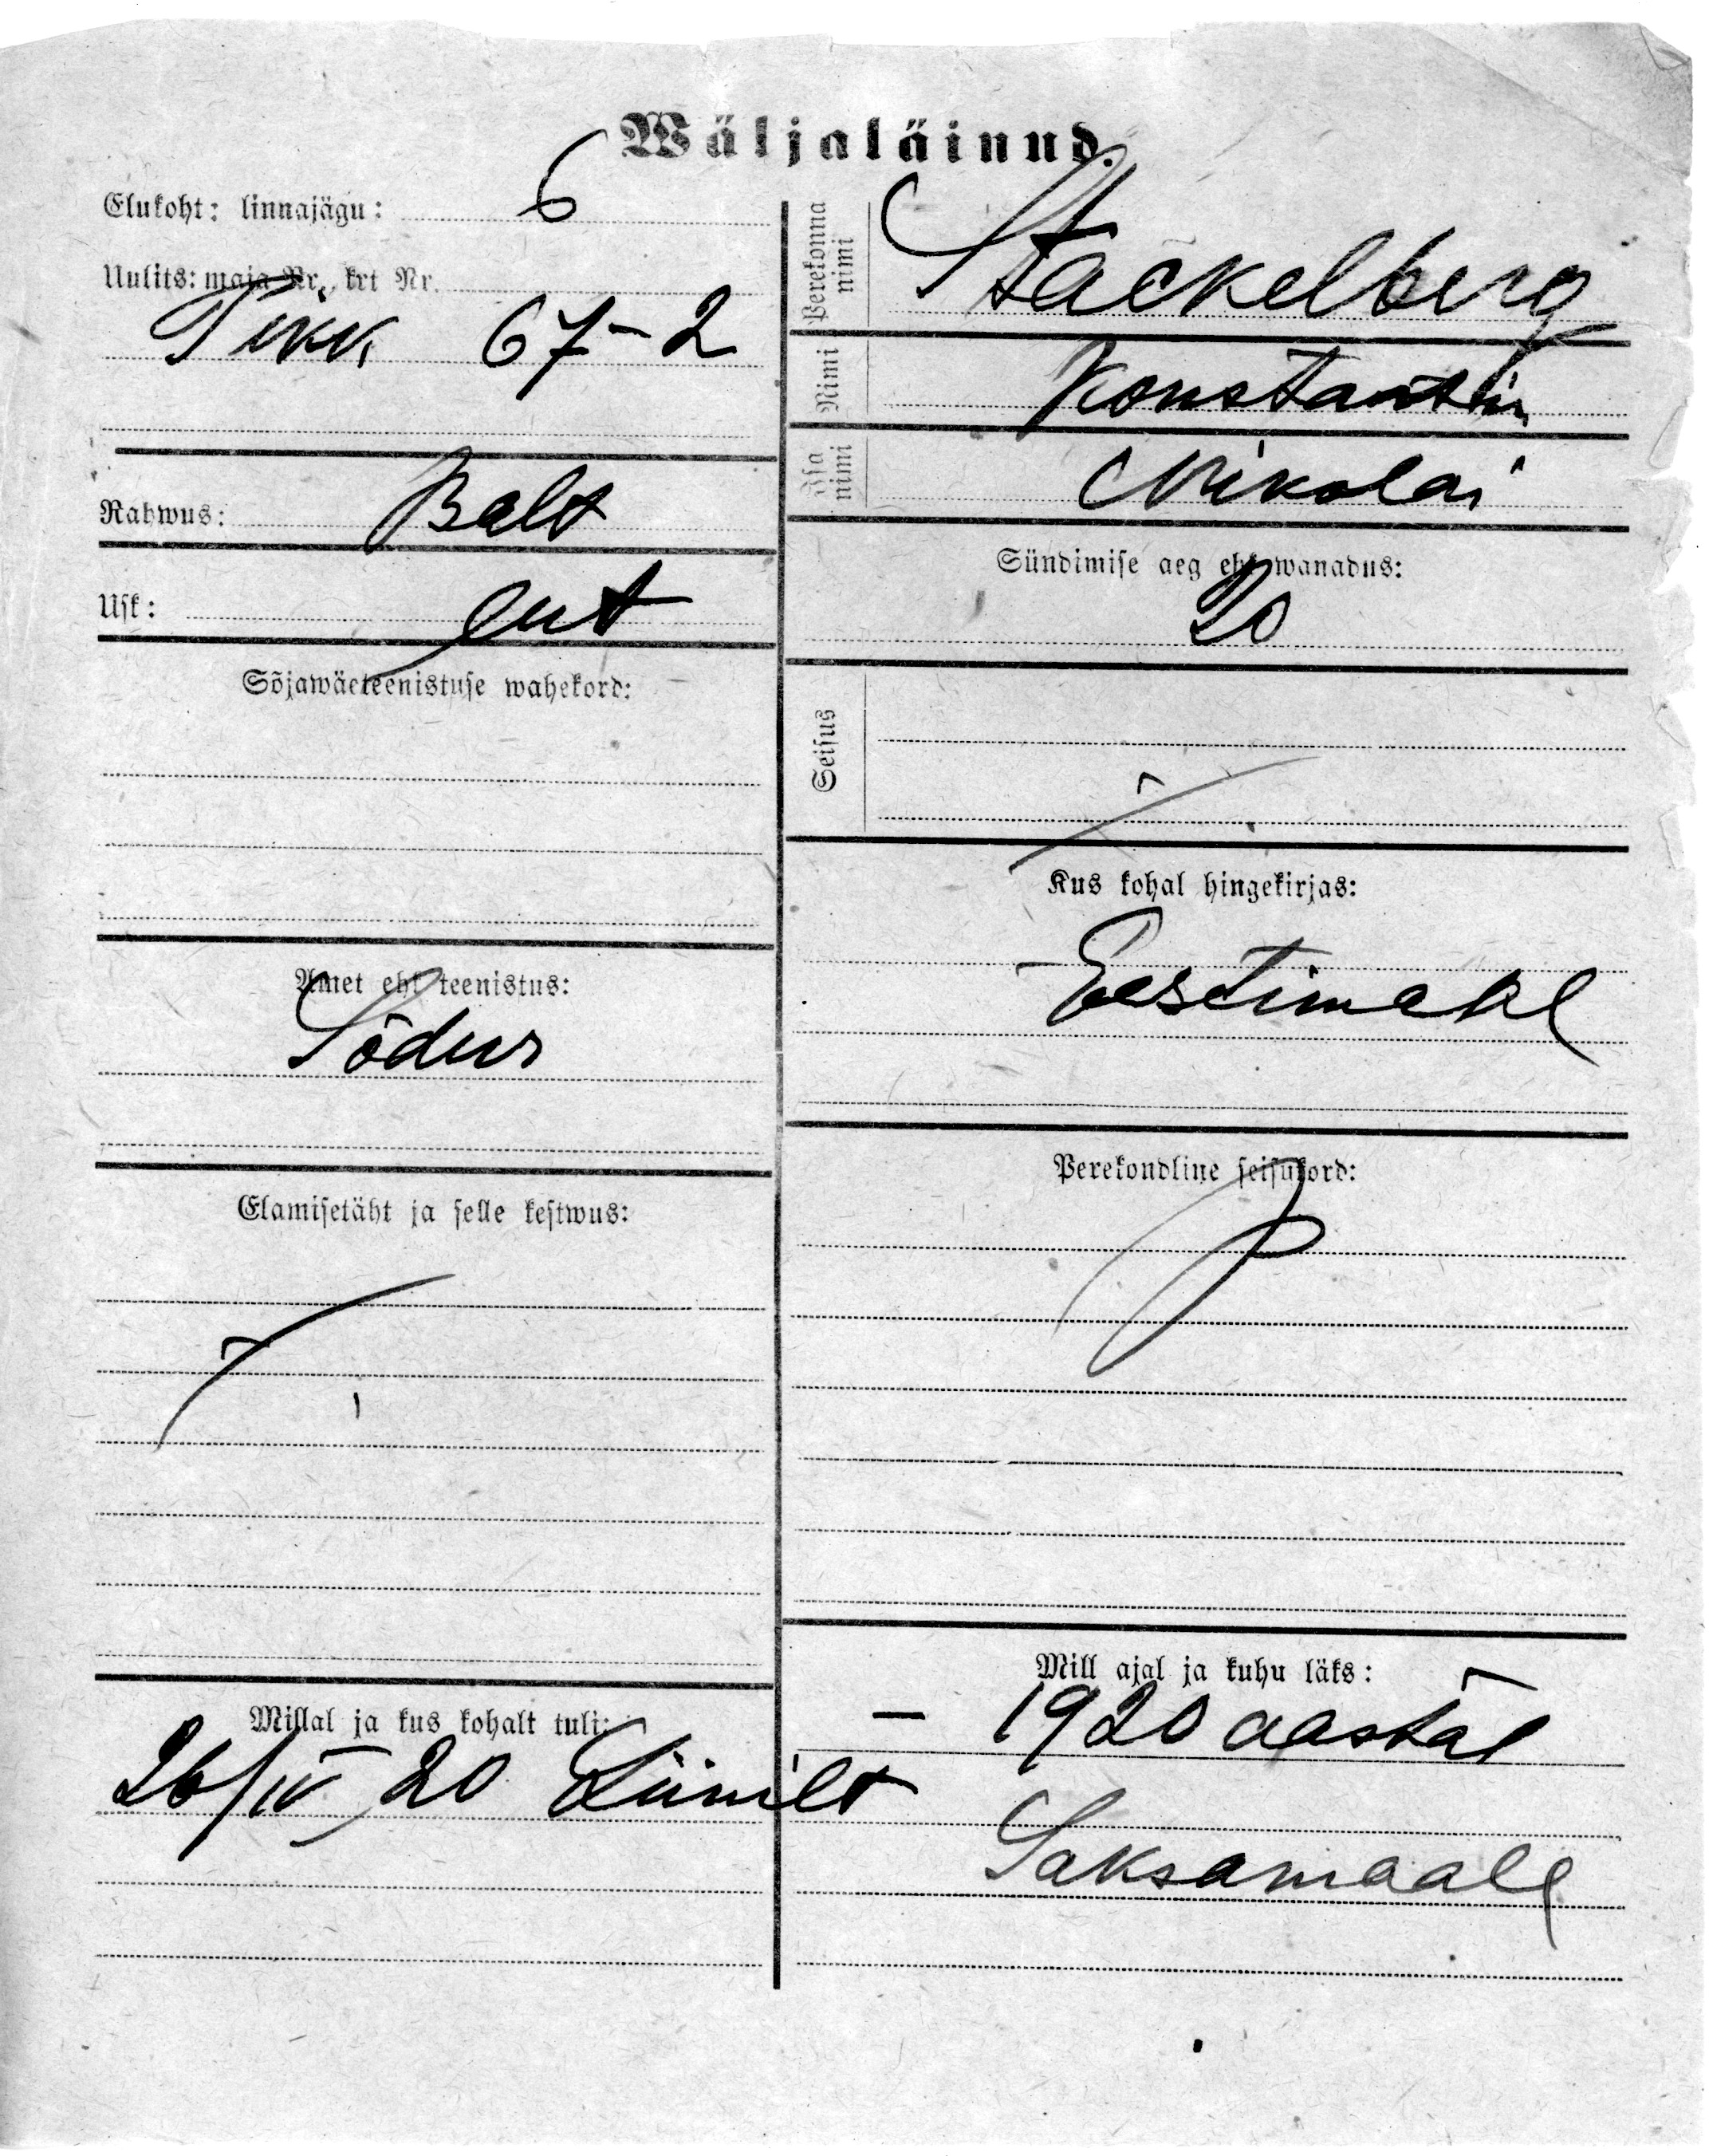 Wäljaläinud.
Elukoht: linnajägu: 6
Uulits: maja Nr., krt Nr.
Pikk 67-2
Rahwus: Balt
Usk: lut
Sõjawäeteenistuse wahekord:
Amet eht teenistus:
Sõdur
Elamisetäht ja selle kestwus:
Millal ja kus kohalt tuli:
26/IV 20
Perekonna nimi Stackelberg
Nimi Konstantin
Isa nimi Nikolai
Sündimise aeg eht wanadus:
20
Seisus
Kus kohal hingekirjas:
Eestimehl
Perekondline seisukord:
Mill ajal ja kuhu läks:
— 1920 aastal
Saksamaale